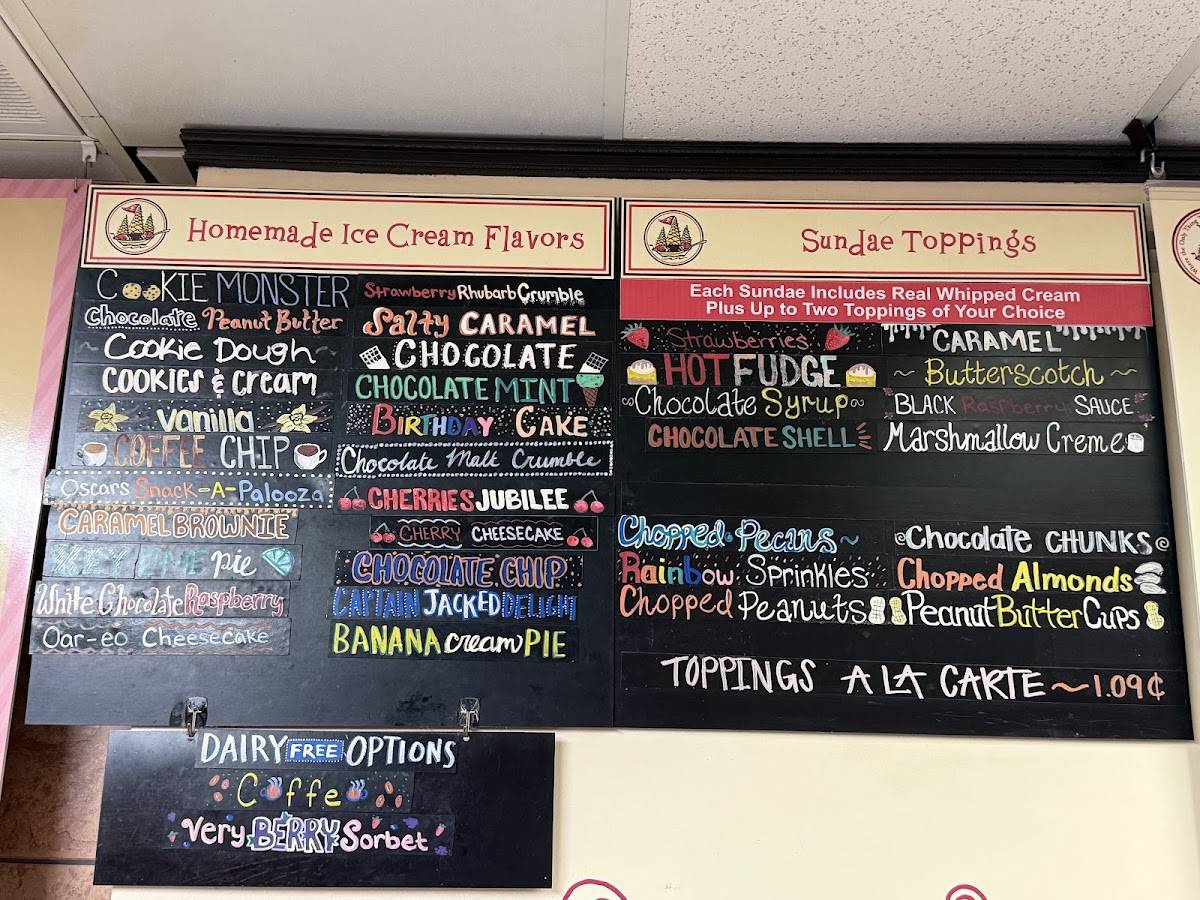 Homemade Ice Cream Flavors
COOKIE MONSTER
Chocolate Peanut Butter
Cookie Dough
COOKIES & CREAM
Vanilla
COFFEE CHIP
Oscars Snack-A-Palooza
CARAMEL BROWNIE
KEY LIME Pie
White Chocolate Raspberry
Oar-eo Cheesecake
Strawberry Rhubarb Crumble
Salty CARAMEL
CHOCOLATE
CHOCOLATE MINT
BIRTHDAY CAKE
Chocolate Malt Crumble
CHERRIES JUBILEE
CHERRY CHEESECAKE
CHOCOLATE CHIP
CAPTAIN JACKED DELIGHT
BANANA cream PIE
DAIRY FREE OPTIONS
Coffe
Very BERRY Sorbet
Sundae Toppings
Each Sundae Includes Real Whipped Cream
Plus Up to Two Toppings of Your Choice
Strawberries
HOT FUDGE
Chocolate Syrup
CHOCOLATE SHELL
CARAMEL
~ Butterscotch ~
BLACK Raspberry SAUCE
Marshmallow Creme
Chopped Pecans ~
Rainbow Sprinkles
Chopped Peanuts
Chocolate CHUNKS
Chopped Almonds
Peanut Butter Cups
TOPPINGS A LA CARTE ~ 1.09¢